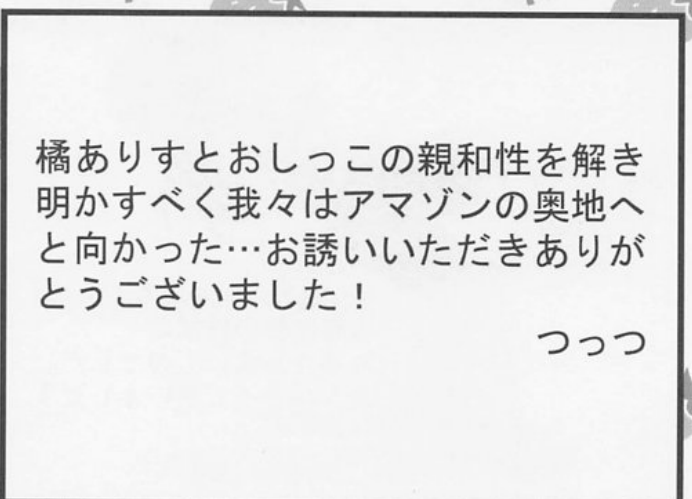 橘ありすとおしっこの親和性を解き
明かすべく我々はアマゾンの奥地へ
と向かった…お誘いいただきありが
とうございました！
つっつ